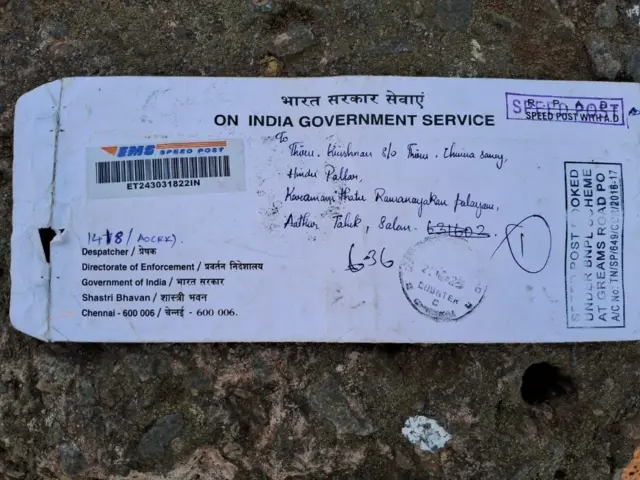 भारत सरकार सेवाएं
ON INDIA GOVERNMENT SERVICE
SPEED POST
R P A D
SPEED POST WITH A.D
EMS SPEED POST
ET243031822IN
To
Thiru. Krishnan S/o Thiru. Chinna samy,
Hindu Pallan,
Ramanayakan palayam,
Aathur Taluk, Salem. 631602
636
1
1418/
Despatcher / प्रेषक
Directorate of Enforcement / प्रवर्तन निदेशालय
Government of India / भारत सरकार
Shastri Bhavan / शास्त्री भवन
Chennai - 600 006 / चेन्नई - 600 006.
COUNTER
C
SPEED POST BOOKED
UNDER BNPL SCHEME
AT GREAMS ROAD PO
A/C No: TN/SP/649/CCC/2016-17